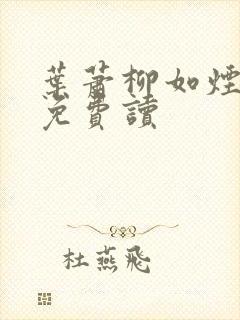 葉蕭柳如煙
免費讀
杜燕飛